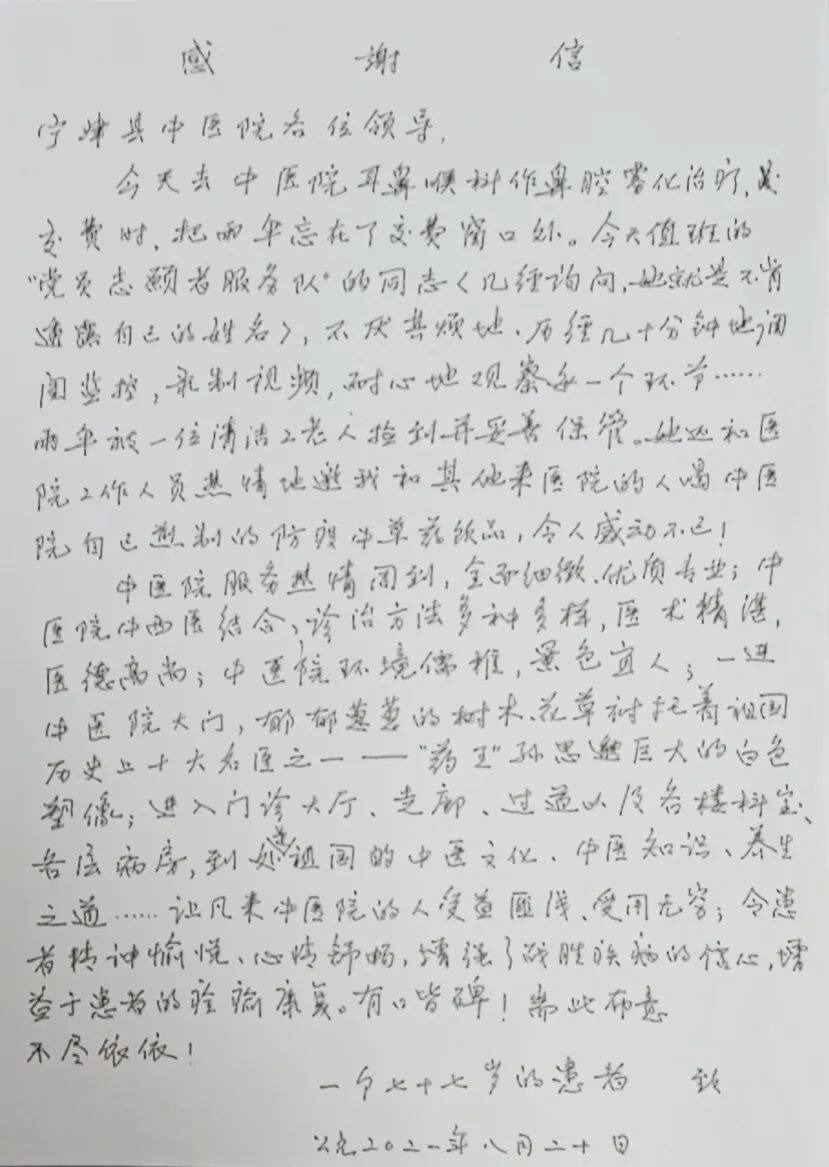 感谢信
宁津县中医院各位领导,
今天去中医院耳鼻喉科作鼻腔雾化治疗,
交费时,把雨伞忘在了交费窗口外。今天值班的
"党员志愿者服务队"的同志(几经询问,她就是不肯
透露自己的姓名),不厌其烦地、历经几十分钟地调
阅监控,录制视频,耐心地观察每一个环节……
雨伞被一位清洁工老人捡到并妥善保管。她还和医
院工作人员热情地邀我和其他来医院的人喝中医
院自己熬制的防疫中草药饮品,令人感动不已!
中医院服务热情周到,全面细微、优质专业;中
医院中西医结合,诊治方法多种多样,医术精湛,
医德高尚;中医院环境儒雅,景色宜人;一进
中医院大门,郁郁葱葱的树木、花草衬托着祖国
历史上十大名医之一——"药王"孙思邈巨大的白色
塑像;进入门诊大厅、走廊、过道以及各楼科室、
各层病房,到处是祖国的中医文化、中医知识、养生
之道……让凡来中医院的人受益匪浅、受用无穷;令患
者精神愉悦、心情舒畅,增强了战胜疾病的信心,增
益于患者的痊愈康复。有口皆碑!耑此布意
不尽依依!
一个七十七岁的患者 致
公元2021年八月二十日